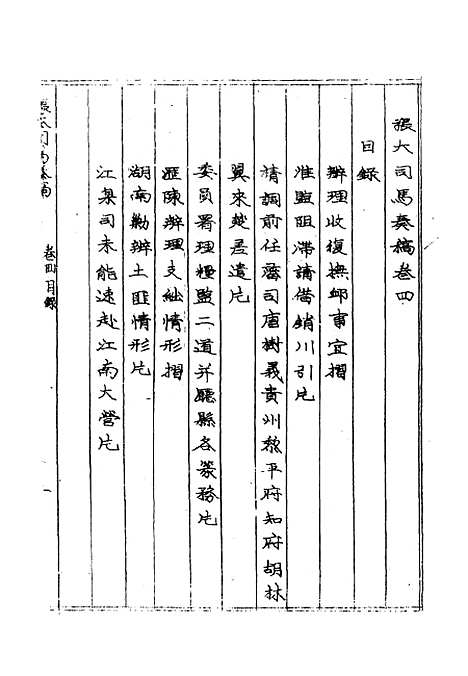 張大司馬奏稿卷四
目錄
辦理收復撫卹事宜摺
淮鹽阻滯請借銷川引片
請調前任藩司唐樹義貴州黎平府知府胡林
翼來楚差遣片
委員署理糧鹽二道并廳縣各篆務片
匯陳辦理支絀情形摺
湖南勦辦土匪情形片
江臬司未能速赴江南大營片
張大司馬奏稿
卷四目錄
一